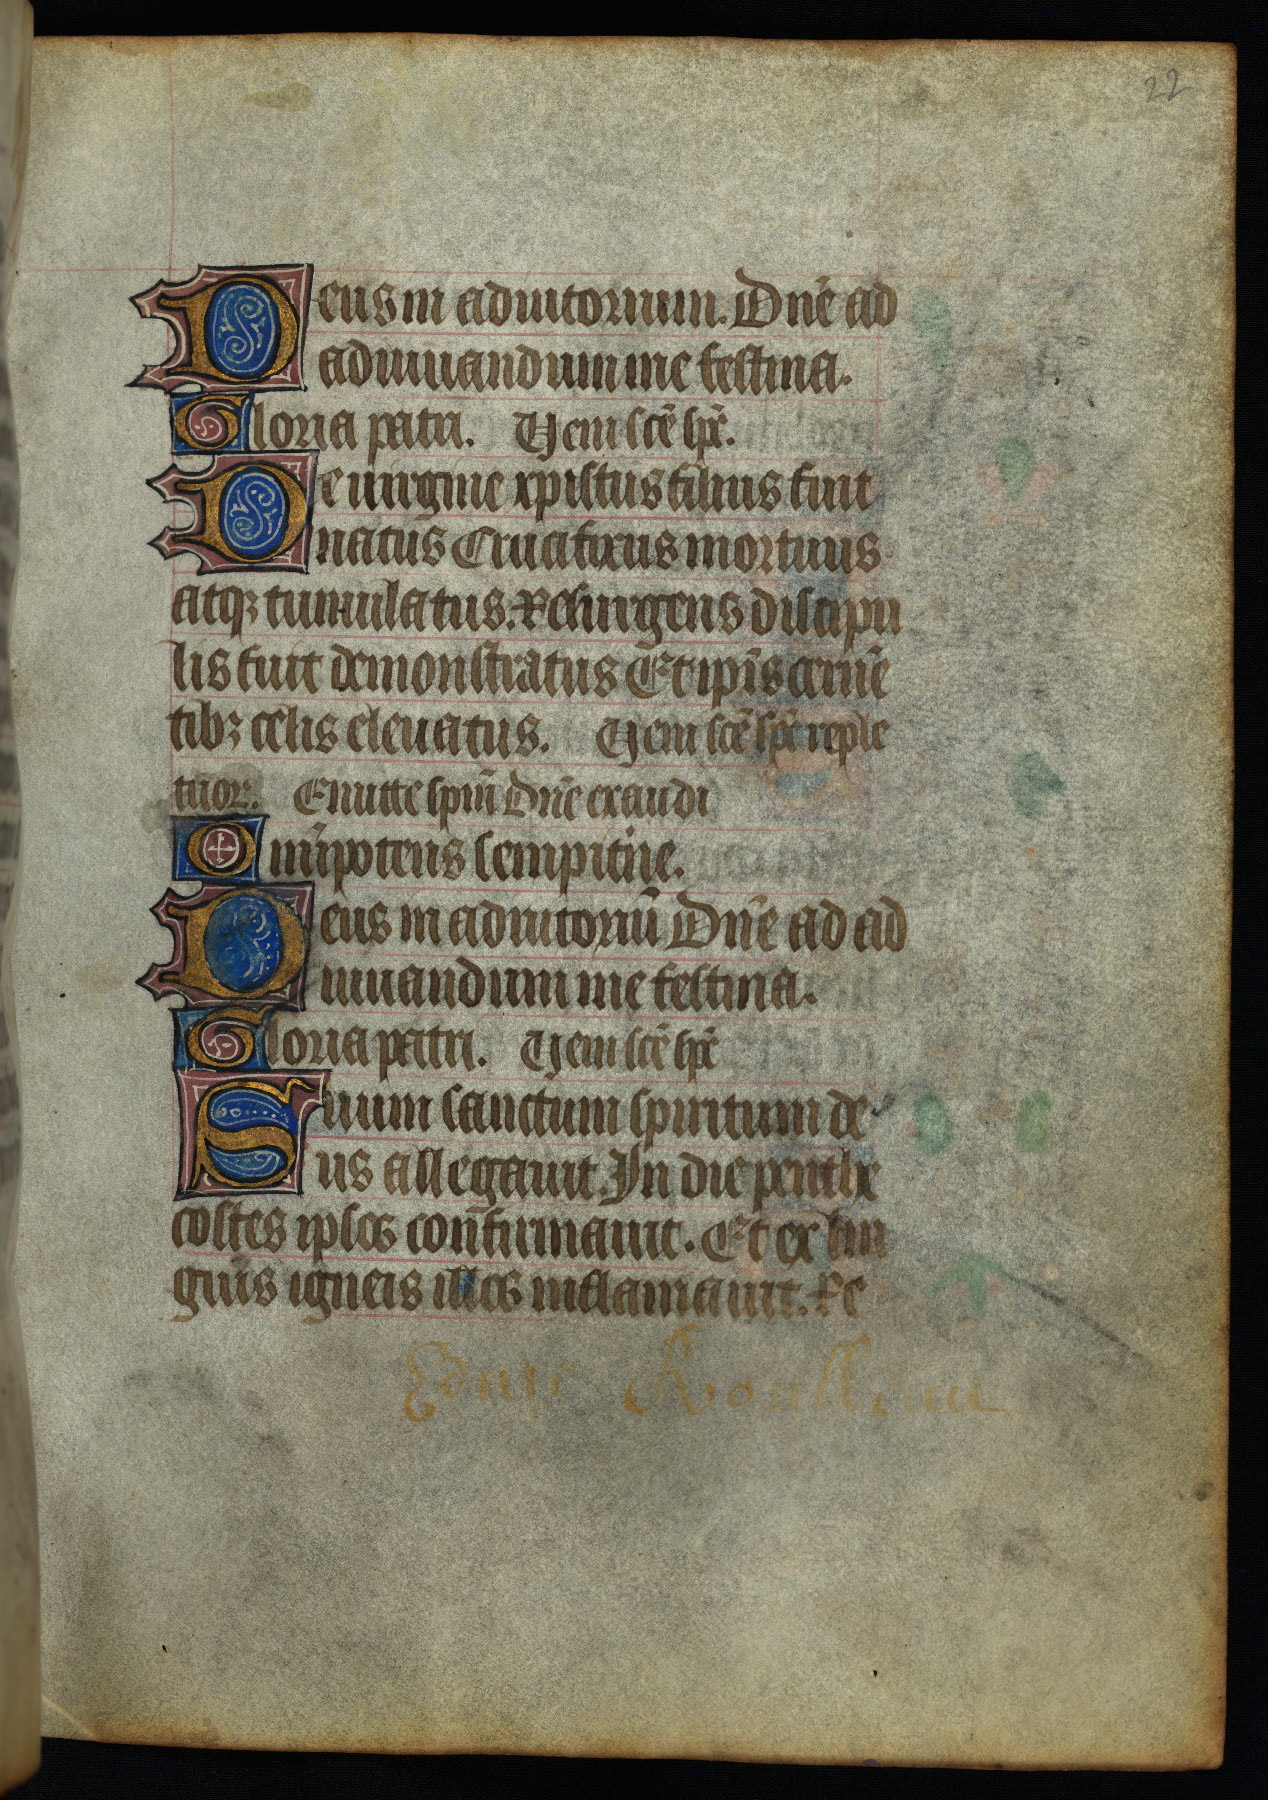 22
Deus in adiutorium. Dn̄e ad
adiuuandum me festina.
Gloria patri. Veni sc̄e sp̄r.
De uirgine xpistus filius fuit
natus Crucifixus mortuus
atqꝫ tumulatus. Resurgens discipu
lis fuit demonstratus Et ip̄is cerne᷑
tibꝫ celis eleuatus. Veni sc̄e sp̄r reple
tuoꝝ. Emitte spm̄ Dn̄e exaudi
Omīpotens sempit̄ne.
Deus in adiutoriū Dn̄e ad ad
iuuandum me festina.
Gloria patri. Veni sc̄e sp̄r
Suum sanctum spiritum de
us allegauit. In die penthe
costes ipsos confirmauit. Et ex lin
guis igneis illos inflamauit. Re
Edme Roulleau